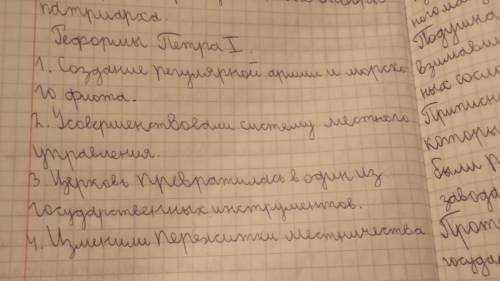 патриарха.
Реформы Петра I.
1. Создание регулярной армии и морско
го флота.
2. Усовершенствовали систему местного
управления.
3. Церковь превратилась в один из
государственных инструментов.
4. Изменили пережитки местничества
Подушна
взимавш
ных сосло
Приписн
которы
были п
завода
Прот
государ